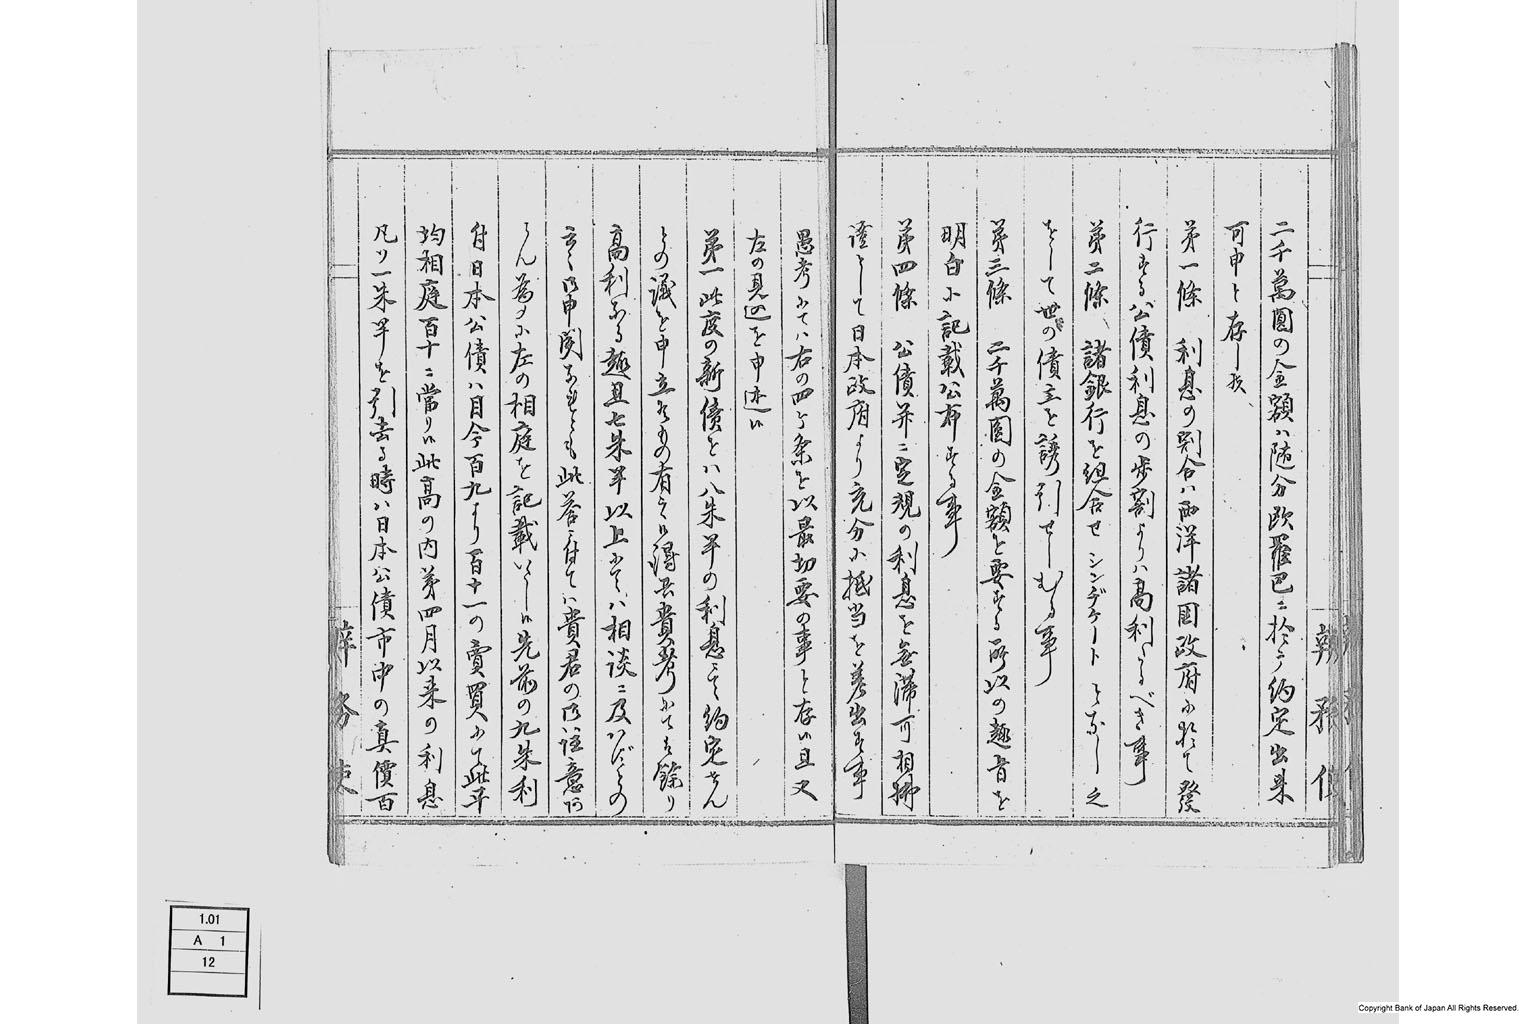 二千萬圓の金額ハ随分欧羅巴ニ於テ約定出来
可申と存し候
第一條 利息の割合ハ西洋諸国政府に於て發
行する公債利息の歩割よりハ高利たるべき事
第二條 諸銀行を組合せシンヂケートとなし之
をして世の債主を誘引せしむる事
第三條 二千萬圓の金額を要する所以の趣旨を
明白に記載公布する事
第四條 公債并ニ定規の利息を無滞可相拂
證として日本政府より充分に抵当を差出す事
愚考にてハ右の四ケ条を以最切要の事と存候且又
左の見込を申述候
第一此度の新債をハ八朱半の利息にて約定せん
との議を申立るもの有之候得共貴考にてを餘り
高利なる趣且七朱半以上にてハ相談ニ及ハずとの
云々御申聞なれとも此答に付てハ貴君の御注意
らん為メに左の相庭を記載いたし候先前の九朱利
付日本公債ハ目今百九より百十一の賣買にて此平
均相庭百十ニ當り候此高の内第四月以来の利息
凡ソ一朱半を引去る時ハ日本公債市中の真價百
辨務使
1.01
A 1
12
Copyright Bank of Japan All Rights Reserved.